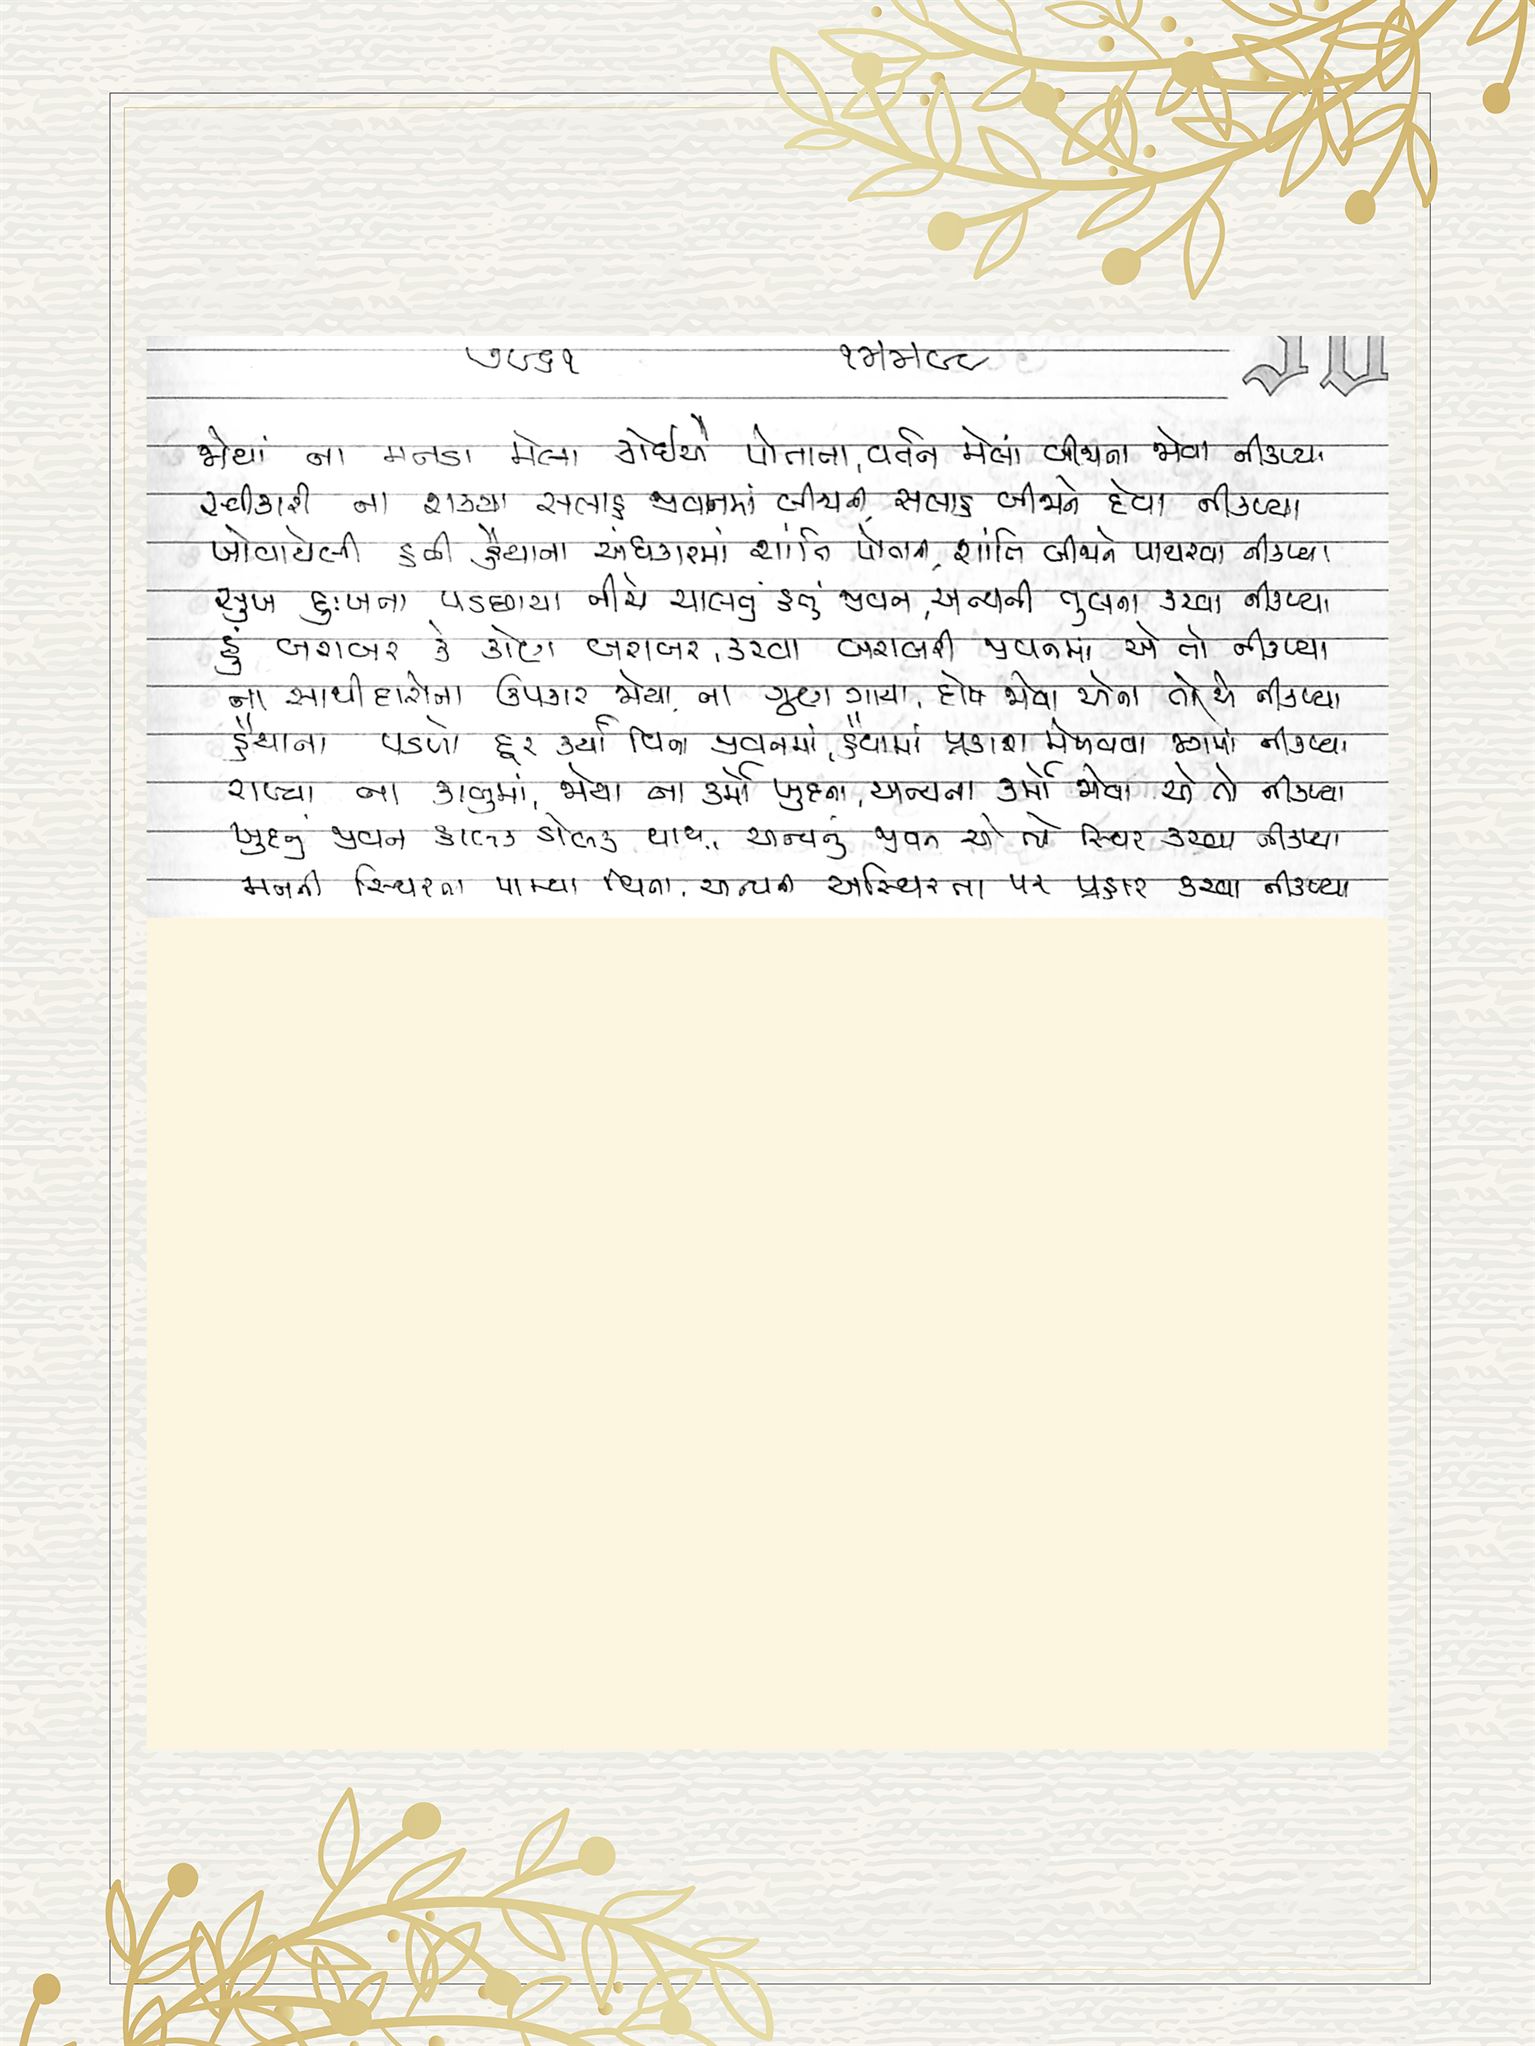 જોયાં ના મનડા મેલા કોઈએ પોતાના, વર્તન મેલાં બીજાના જોવા નીકળ્યા
સ્વીકારી ના શક્યા સલાહ જીવનમાં બીજાની, સલાહ બીજાને દેવા નીકળ્યા
ખોવાયેલી હતી હૈયાના અંધકારમાં શાંતિ પોતાની, શાંતિ બીજાને પાથરવા નીકળ્યા
સુખ દુઃખના પડછાયા નીચે ચાલતું હતું જીવન, અન્યની તુલના કરવા નીકળ્યા
હું બરાબર કે કોણ બરાબર, કરવા બરાબરી જીવનમાં એ તો નીકળ્યા
ના સાથીદારોના ઉપકાર જોયા, ના ગુણ ગાયા, દોષ જોવા એના તોયે નીકળ્યા
હૈયાના પડળો દૂર કર્યા વિના જીવનમાં, હૈયામાં પ્રકાશ મેળવવા જગમાં નીકળ્યા
રાખ્યા ના કાબુમાં, જોયા ના કર્મો ખુદના, અન્યના કર્મો જોવા એ તો નીકળ્યા
ખુદનું જીવન હાલક ડોલક થાય, અન્યનું જીવન એ તો સ્થિર કરવા નીકળ્યા
મનની સ્થિરતા પામ્યા વિના, અન્યની અસ્થિરતા પર પ્રહાર કરવા નીકળ્યા